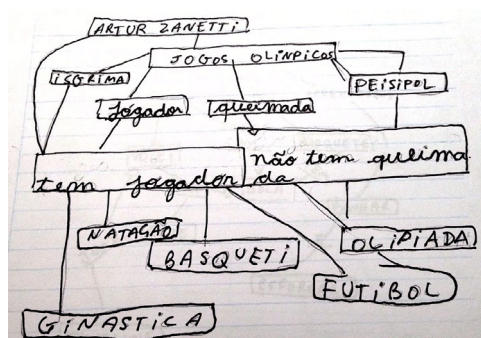 ARTUR ZANETTi
JOGOS OLiNPiCOS
iSGRiMA
PEiSiPOL
Jogador
queimada
não tem queima
da
tem jogador
NATAGÃO
BASQUETi
OLiPiADA
FUTiBOL
GiNASTiCA